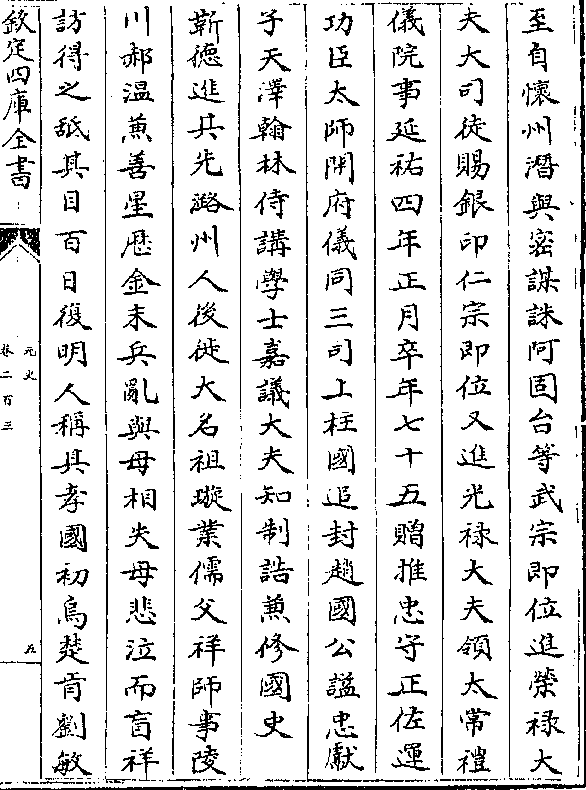 至自懷州潛與密謀誅阿固台等武宗即位進榮祿大
夫大司徒賜銀印仁宗即位又進光祿大夫領太常禮
儀院事延祐四年正月卒年七十五贈推忠守正佐運
功臣太師開府儀同三司上柱國追封趙國公諡忠獻
子天澤翰林侍講學士嘉議大夫知制誥兼修國史
靳德進其先潞州人後徙大名祖璇業儒父祥師事陵
川郝温兼善星歴金末兵亂與母相失母悲泣而盲祥
訪得之舐其目百日復明人稱其孝國初烏楚肯劉敏
欽定四庫全書
元史
卷二百三
五